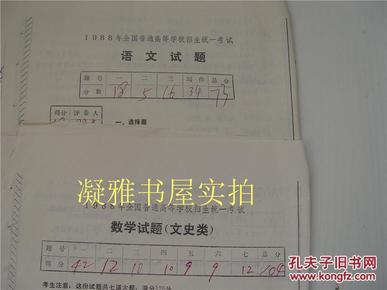 1988年全国普通高等学校招生统一考试
语文试题
题号 一 二 三 写作 总分
分数 18 5 16 34 73
得分 评卷人
一、选择题
1988年全国普通高等学校招生统一考试
数学试题(文史类)
题号 一 二 三 四 五 六 七 总分
得分 42 12 10 10 9 9 12 104
考生注意:这份试题共七道大题,满分120分
凝雅书屋实拍